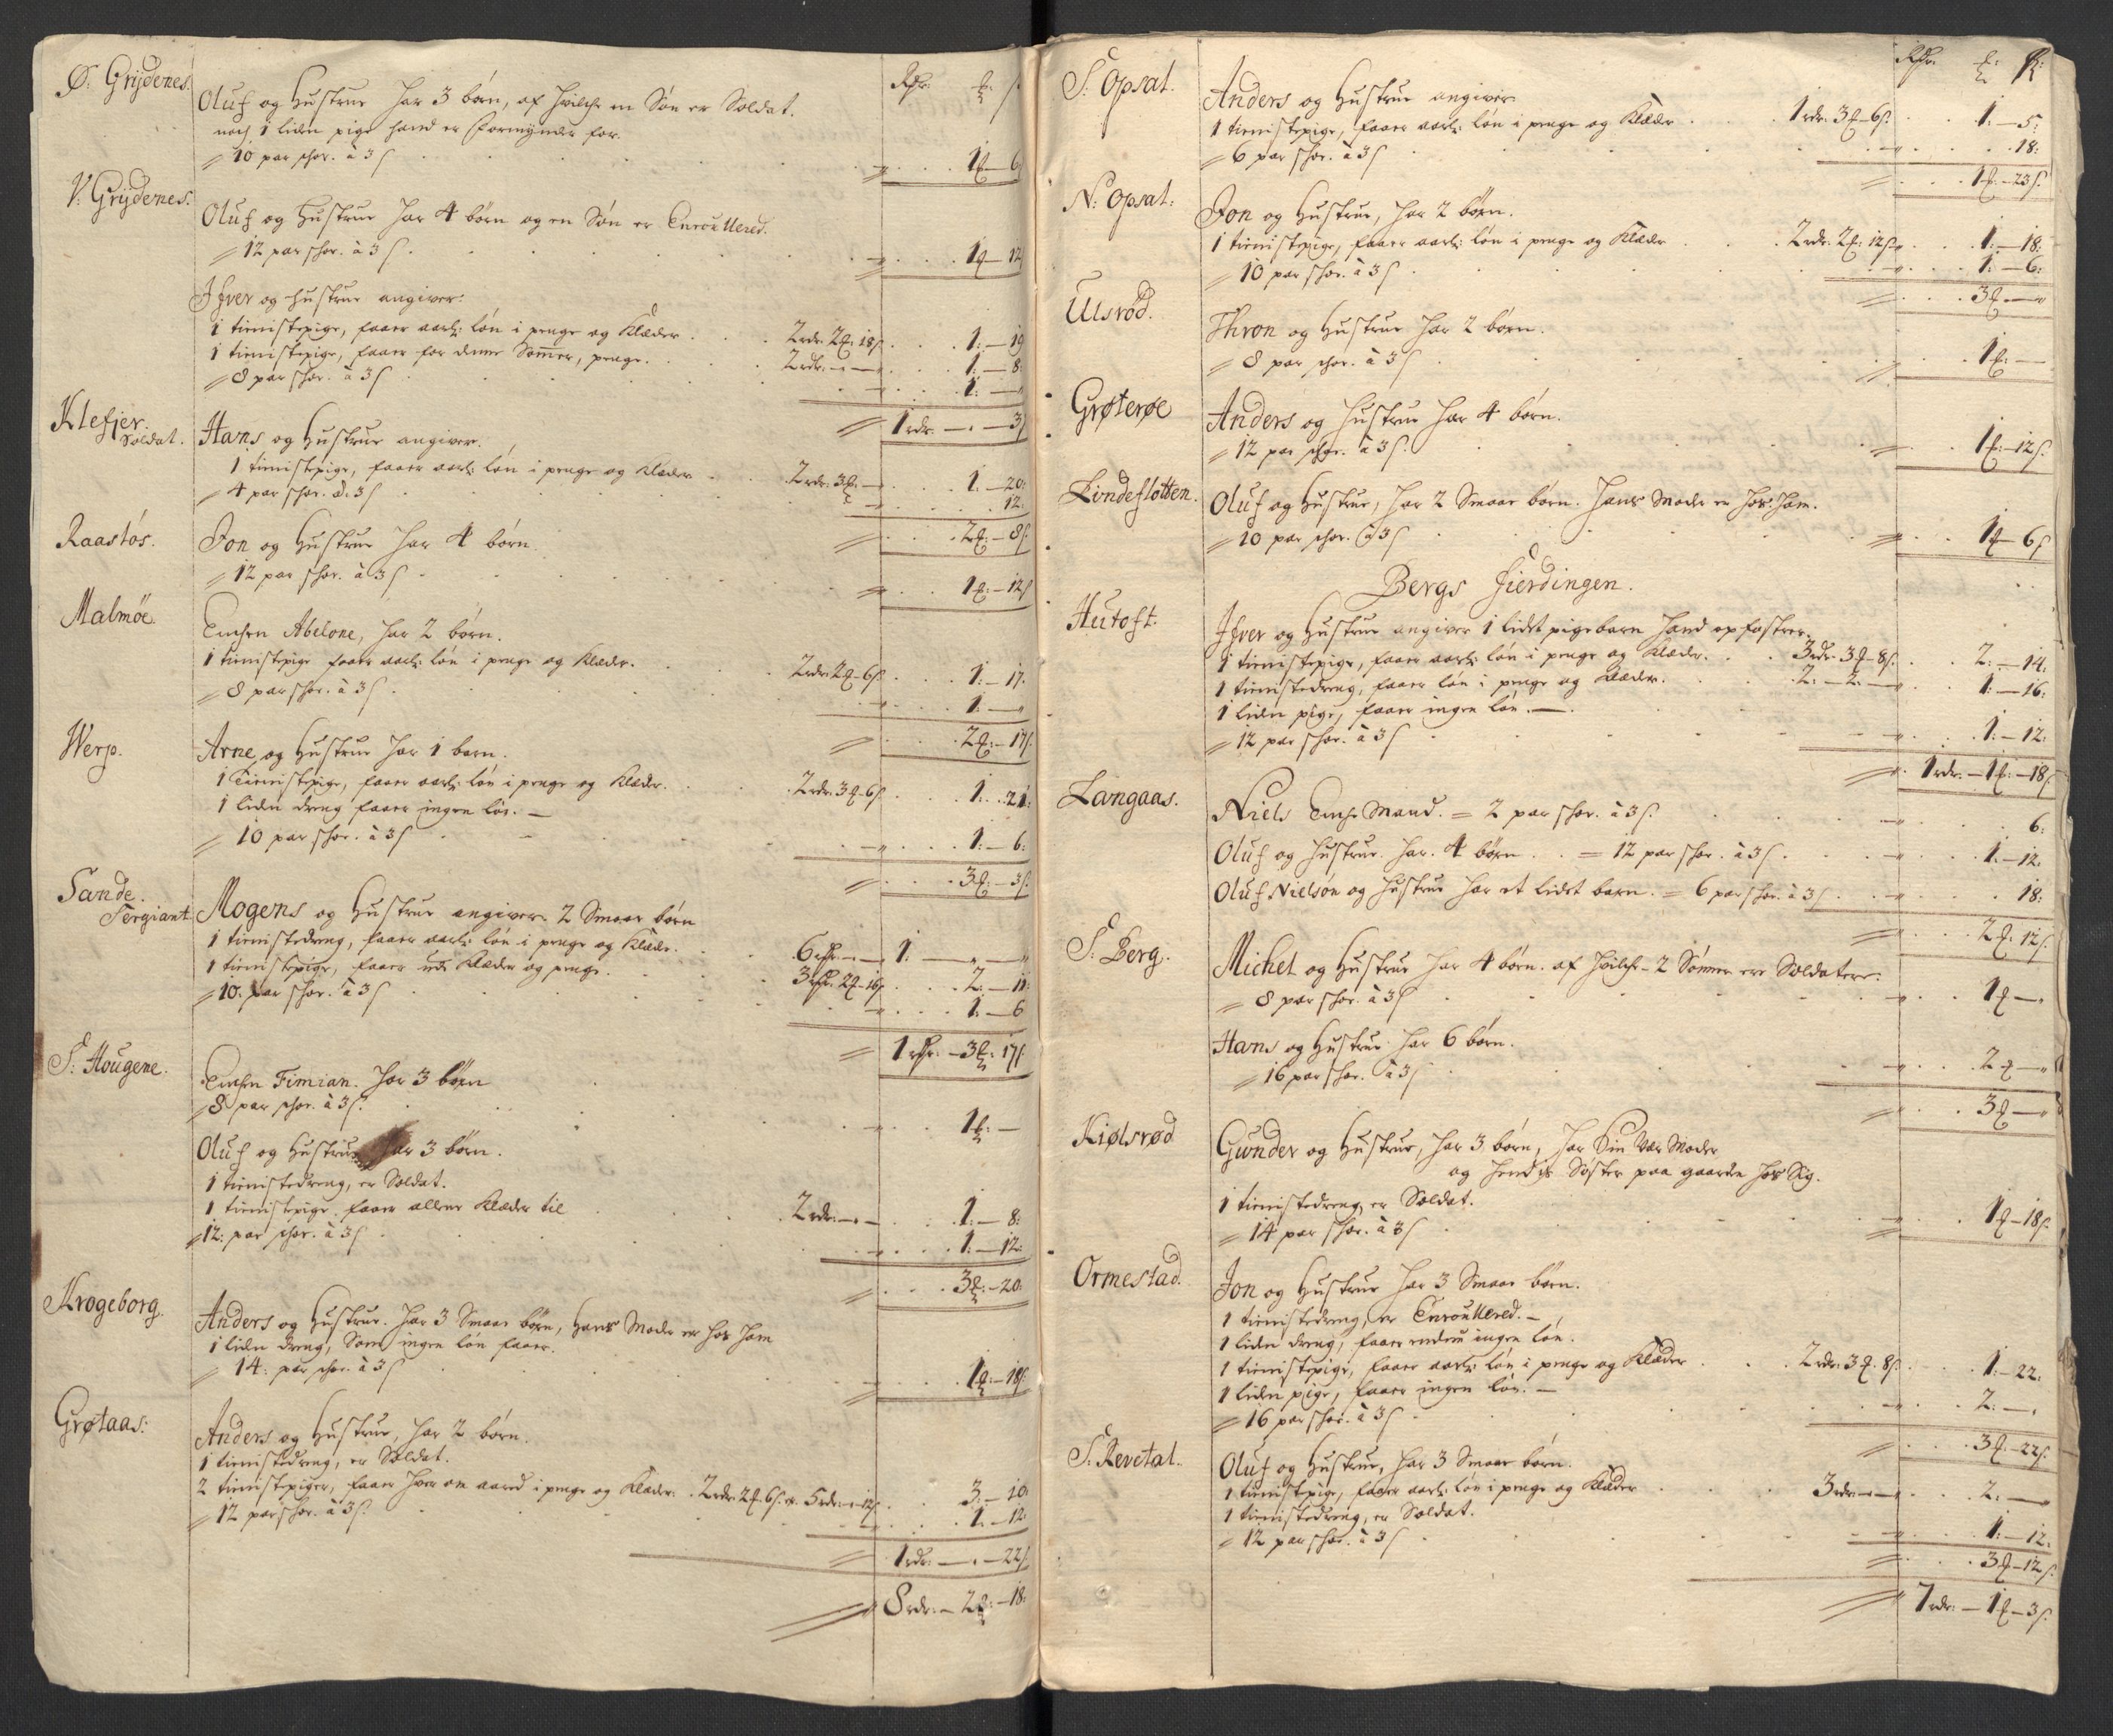 Rdr: ℔: s
Ø: Grydenes.
Oluf og Hustrue har 3 børn, af hvilche en Søn er Soldat.
noch 1 liden pige hand er Formynder for.
10 par schor. à 3 s 1℔ — 6
V: Grydenes:
Oluf og Hustrue har 4 børn og en Søn er Enroullered.
12 par schor. à 3 s 1℔ — 12
Ifver og hustrue angiver:
1 tienistepige, faaer aarl: løn i penge og Klæder 2 rdr. 2℔: 18 s 1: — 19
1 tienistepige, faaer for denne Sommer, penge. 2 rdr. — 1: — 8:
8 par schor. à 3 s 1: —
1 rdr. — 3 s
Klefjer.
Soldat.
Hans og Hustrue angiver.
1 tienistepige, faaer aarl: løn i penge og Klæder 2 rdr: 3℔: — 1 — 20:
4 par schor. à 3 s 12:
2℔: — 8 s
Raastos.
Jon og Hustrue har 4 børn
12 par schor. à 3 s 1℔: — 12 s
Malmöe.
Enchen Abelone, har 2 børn.
1 tienistepige faaer aarl: løn i penge og Klæder. 2 rdr. 2℔ — 6 s 1: — 17.
8 par schor. à 3 s 1: —
2℔: — 17 s.
Werp.
Arne og Hustrue har 1 barn.
1 tienistepige, faaer aarl: løn i penge og Klæder. 2 rdr. 3℔ — 6 s 1: 21:
1 liden dreng faaer ingen løn. —
10 par schor. à 3 s 1: — 6:
3℔: — 3 s.
Sande.
Sergiant
Mogens og Hustrue angiver. 2 Smaae børn
1 tienistedreng, faaer aarl: løn i penge og Klæder. 6 rdr. — 1: —
1 tienistepige, faaer udi Klæder og penge. 3 rdr. 2℔ — 16 s 2: — 11:
10. par schor. à 3 s 1: — 6
1 rdr. — 3℔: 17 s.
S: Hougene.
Enchen Fimian. har 3 børn
8 par schor. à 3 s. 1℔: —
Oluf og Hustrue har 3 børn.
1 tienistedreng, er Soldat.
1 tienistepige faaer allene Klæder til 2 rdr. — 1: — 8:
12: par schor. à 3 s 1: — 12:
3℔: — 20:
Krogeborg.
Anders og Hustrue. har 3 Smaae børn, Hans Moder er hos ham
1 liden dreng, Som ingen løn faaer.
14. par schor. à 3 s 1℔: — 18 s:
Grøtaas:
Anders og Hustrue, har 2 børn.
1 tienistedreng, er Soldat.
2 tienistepiger, faaer hver om aared i penge og Klæder. 2 rdr. 2℔. 6 s. er. 5 rdr. — 12 s 3: — 10:
12 par schor. à 3 s. 1: — 12:
1 rdr: — 22 s.
8 rdr: — 2℔: — 18:
Rdr: ℔: s:
S: Opsat.
Anders og Hustrue angiver
1 tienistepige, faaer aarl: løn i penge og Klæder 1 rdr. 3℔ — 6 s: 1: — 5:
6 par schor. à 3 s 18:
1℔: — 23 s.
N: Opsat:
Jon og Hustrue, har 2 børn.
1 tienistepige, faaer aarl: løn i penge og Klæder 2 rdr. 2℔: 12 s 1: — 18:
10 par schor. à 3 s 1: — 6:
3℔ —
Ulsrød.
Thron og Hustrue har 2 børn.
8 par schor. à 3 s 1℔: —
Grøterøe
Anders og Hustrue har 4 børn.
12 par schor. à 3 s. 1℔: — 12 s.
Lindeslotten.
Oluf og Hustrue, har 2 Smaae børn. Hans Moder er hos ham.
10 par schor. à 3 s 1℔ — 6 s
Bergs Fierdingen.
Hutoft.
Ifver og Hustrue angiver 1 lidet pigebarn hand opfostrer.
1 tienistepige, faaer aarl: løn i penge og Klæder. 3 rdr. 3℔ — 8 s: 2: — 14.
1 tienistedreng, faaer løn i penge og Klæder. 2: — 2. — 1: — 16:
1 liden pige, faaer ingen løn. —
12 par schor. à 3 s 1: — 12:
1 rdr. — 1℔: — 18 s
Langaas.
Niels Enche Mand. = 2 par schor. à 3 s. 6:
Oluf og Hustrue. har. 4 børn. = 12 par schor. à 3 s. 1: — 12.
Oluf Nielsøn og Hustrue har et lidet barn. = 6 par schor. à 3 s 18:
2℔: 12 s.
S: Berg.
Michel og Hustrue har 4 børn. af hvilche 2 Sønner ere Soldatere:
8 par schor. à 3 s 1℔ —
Hans og Hustrue har 6 børn.
16 par schor. à 3 s 2℔ —
3℔ —
Kiølsrød
Gunder og Hustrue, har 3 børn, har Sin Vær Moder
og hendis Søster paa gaarden hos Sig.
1 tienistedreng, er Soldat.
14 par schor. à 3 s 1℔ — 18 s.
Ormestad.
Jon og Hustrue har 3 Smaae børn.
1 tienistedreng, er Enroullered. —
1 liden dreng, faaer endnu ingen løn.
1 tienistepige, faaer aarl: løn i penge og Klæder 2 rdr. 3℔. 8 s. 1: — 22.
1 liden pige, faaer ingen løn. —
16 par schor. à 3 s 2: —
3℔ — 22 s.
S: Revetal.
Oluf og Hustrue, har 3 Smaae børn.
1 tienistepige, faaer aarl: løn i penge og Klæder 3 rdr — 2: —
1 tienistedreng, er Soldat.
12 par schor. à 3 s 1: — 12.
3℔ — 12 s.
7 rdr: — 1℔ — 3 s.